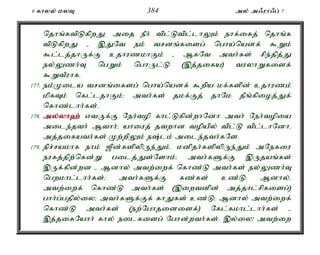 9 காலல் மலவு 384 அல் அஃராஃப் 7
தொங்கவிடுகிறது, அதை நீர் விட்டுவிட்டாலும் நாக்கைத் தொங்க
விடுகிறது - இதுவே நம் வசனங்களைப் பொய்யெனக் கூறும்
கூட்டத்தாருக்கு உதாரணமாகும் - ஆகவே அவர்கள் சிந்தித்து
நல்லுணர்வு பெறும் பொருட்டு (இத்தகைய) வரலாறுகளைக்
கூறுவீராக.
177. நம்முடைய வசனங்களைப் பொய்யெனக் கூறிய மக்களின் உதாரணம்
மிகவும் கெட்டதாகும்; அவர்கள் தமக்குத் தாமே தீங்கிழைத்துக்
கொண்டார்கள்.
178. அல்லாஹ் எவருக்கு நேர்வழி காட்டுகின்றானோ அவர் நேர்வழியை
அடைந்தவர் ஆவார்; யாரைத் தவறான வழியில் விட்டு விட்டானோ,
அத்தகையவர்கள் முற்றிலும் நஷ்டம் அடைந்தவர்களே.
179. நிச்சயமாக நாம் ஜின்களிலிருந்தும், மனிதர்களிலிருந்தும் அநேகரை
நரகத்திற்கென்று படைத்துள்ளோம்; அவர்களுக்கு இருதயங்கள்
இருக்கின்றன - ஆனால் அவற்றைக் கொண்டு அவர்கள் நல்லுணர்வு
பெறமாட்டார்கள்; அவர்களுக்கு கண்கள் உண்டு; ஆனால்,
அவற்றைக் கொண்டு அவர்கள் (இறைவனின் அத்தாட்சிகளைப்)
பார்ப்பதில்லை; அவர்களுக்குக் காதுகள் உண்டு; ஆனால் அவற்றைக்
கொண்டு அவர்கள் (நற்போதனையைக்) கேட்கமாட்டார்கள் -
இத்தகையோர் கால் நடைகளைப் போன்றவர்கள். இல்லை! அவற்றை